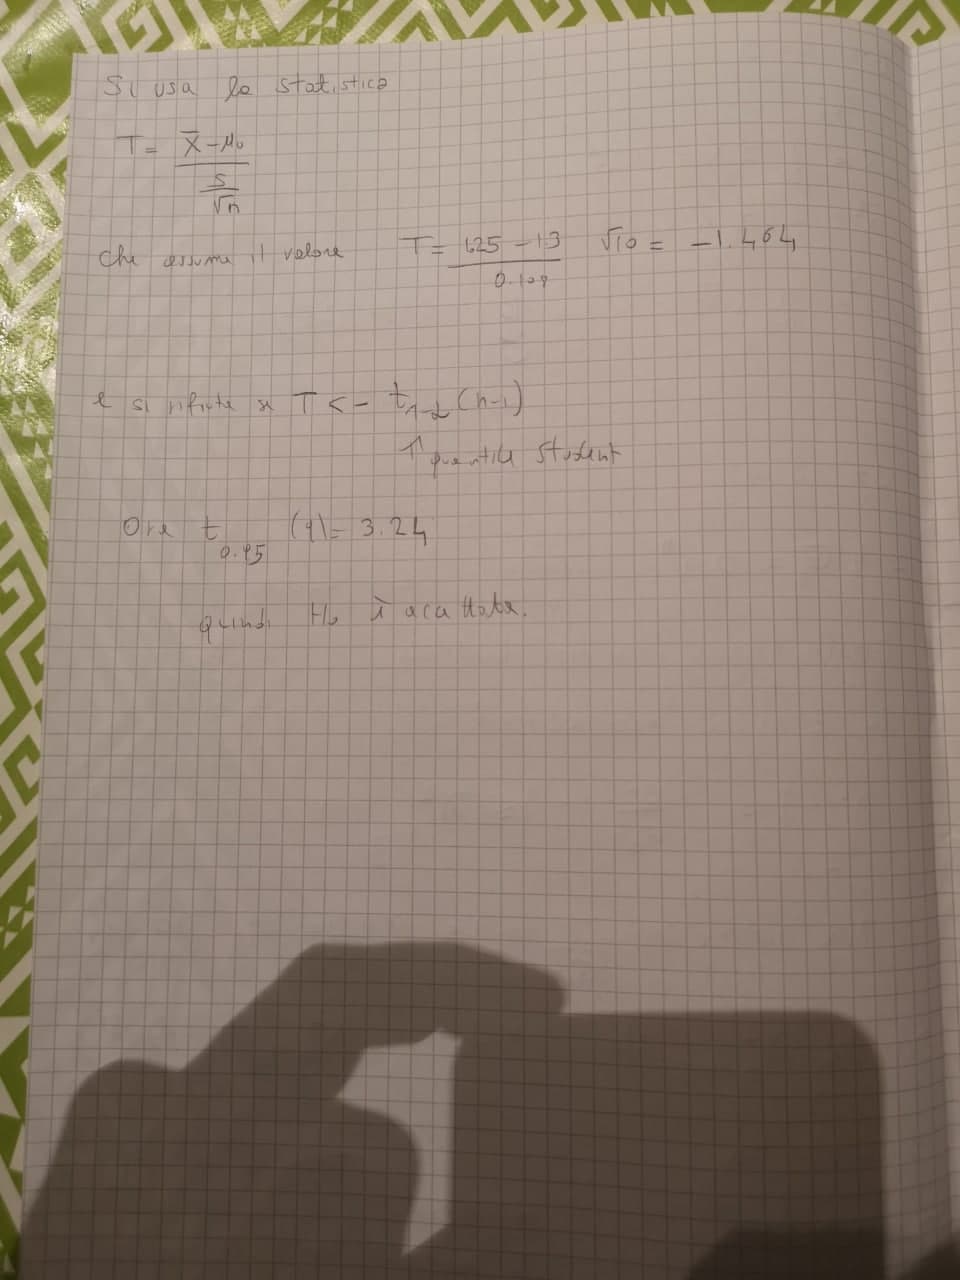 Si usa la statistica
T = X̄ - μ₀ / S/√n
che assume il valore T = 1.25 - 1.3 / 0.108 √10 = -1.464
e si rifiuta se T < - t₁₋α (n-1)
↑ quantile Student
Ora t₀.₉₅ (9) = 3.24
quindi H₀ è accettata.